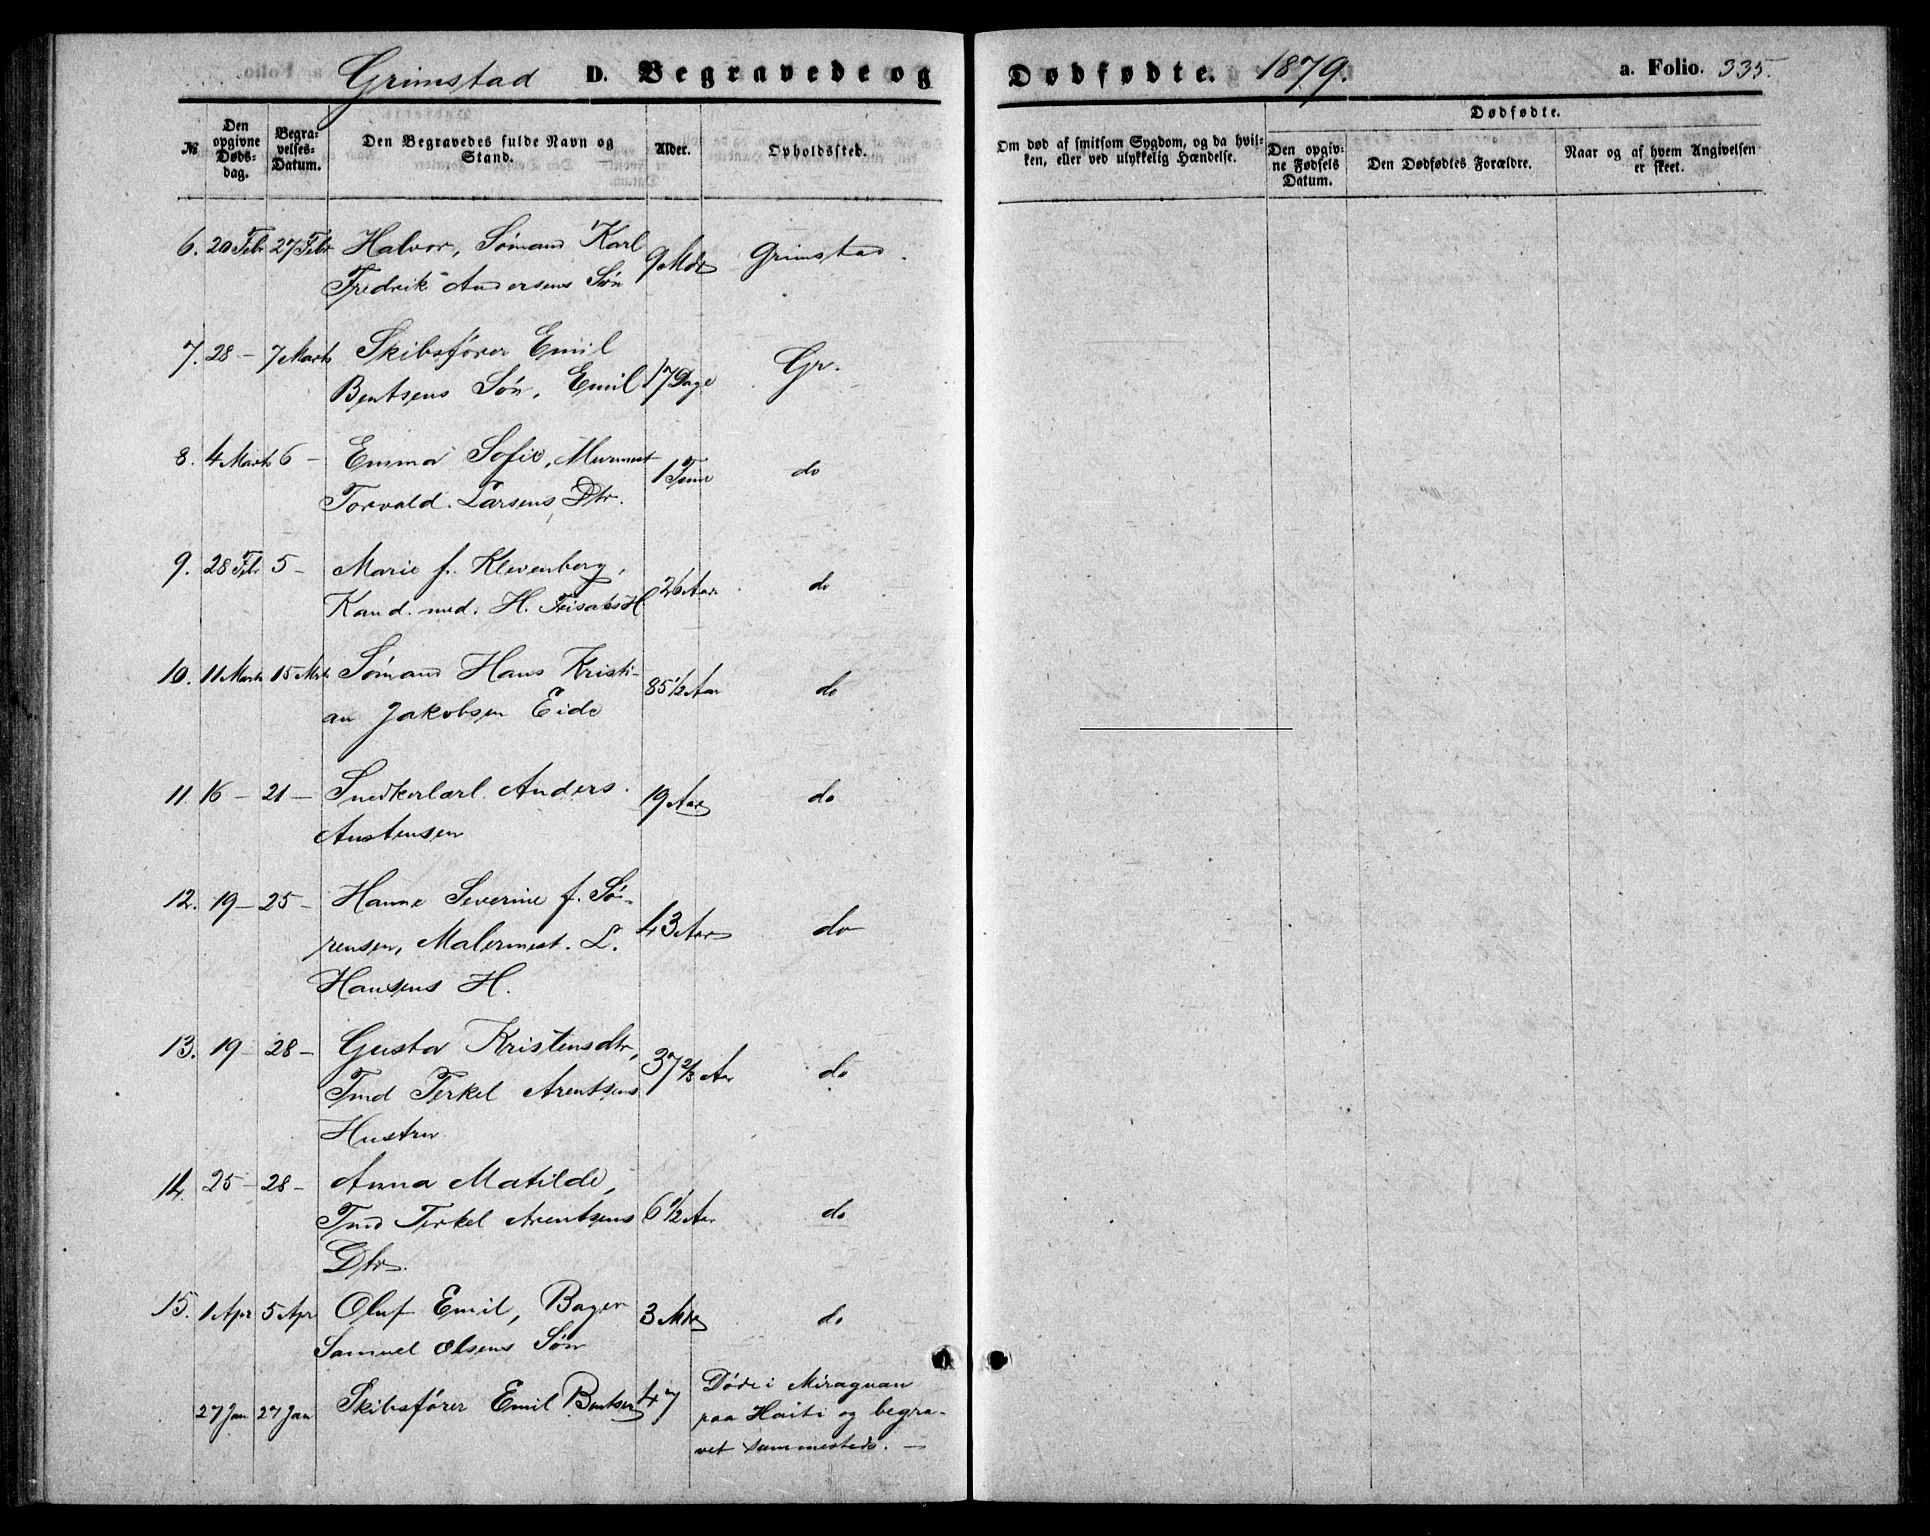 Grimstad D. Begravede og
№
Den opgivne Døds-dag.
Begra-velses-Datum.
Den Begravedes fulde Navn og Stand.
Alder.
Opholdssted.
6. 20 Febr 27 Febr Halvor, Sømand Karl 9 Mdr Grimstad.
Fredrik Andersens Søn
7. 28 – 7 Marts Skibsfører Emil 17 Dage Gr.
Bentsens Søn, Emil
8. 4 Marts 6 – Emma Sofie, Murmest 1 Time do
Torvald Larsens Dtr.
9. 28 Feb 5 – Marie f. Klevenberg, 26 Aar do
Kand. med. H. H
10. 11 Marts 15 Mrt Sømand Hans Kristi- 85 1/2 Aar do
an Jakobsen Eide
11. 16 – 21 – Snedkerlærl. Anders 19 Aar do
Austensen
12. 19 – 25 – Hanne Severine f. Sø- 43 Aar do
rensen, Malermest. L.
Hansens H.
13. 19 – 28 – Gusta Kristensdtr, 37 2/3 Aar do
Tmd Terkel Arentsens
Hustru
14. 25 – 28 – Anna Matilde, 6 1/2 Aar do
Tmd Terkel Arentsens
Dtr.
15. 1 Apr 5 Apr Oluf Emil, Bager 3 Mdr do
Samuel Olsens Søn
27 Jan 27 Jan Skibsfører Emil Bentsen 47 Døde i Miraguan
paa Haiti og begra-
vet sammesteds. –
Dødfødte. 1879. a. Folio. 335.
Om død af smitsom Sygdom, og da hvil-
ken, eller ved ulykkelig Hændelse.
Dødfødte.
Den opgiv-
ne Fødsels
Datum.
Den Dødfødtes Forældre.
Naar og af hvem Angivelsen
er skeet.